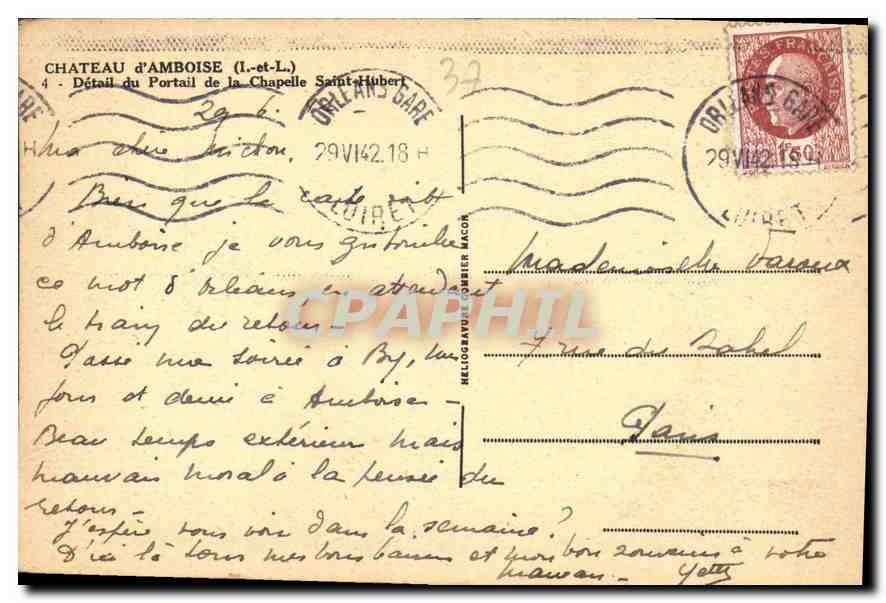 CHATEAU d'AMBOISE (I.-et-L.)
4 - Détail du Portail de la Chapelle Saint-Hubert
37
29.6.
Ma chère
Bien que la carte soit
d'Amboise je vous gribouille
ce mot d'Orléans en attendant
le train du retour -
Passé une soirée à
jour et demi à Amboise -
Beau temps extérieur mais
mauvais moral à la pensée du
retour -
J'espère vous voir dans la semaine?
D'ici là tous mes bons baisers et mon bon souvenir à votre
maman -
HELIOGRAVURE COMBIER MACON
Mademoiselle
7 rue du Sahel
Paris
ORLEANS GARE
29 VI 42.18 H
LOIRET
ORLEANS GARE
29 VI 42.18 H
LOIRET
1F50
CPAPHIL